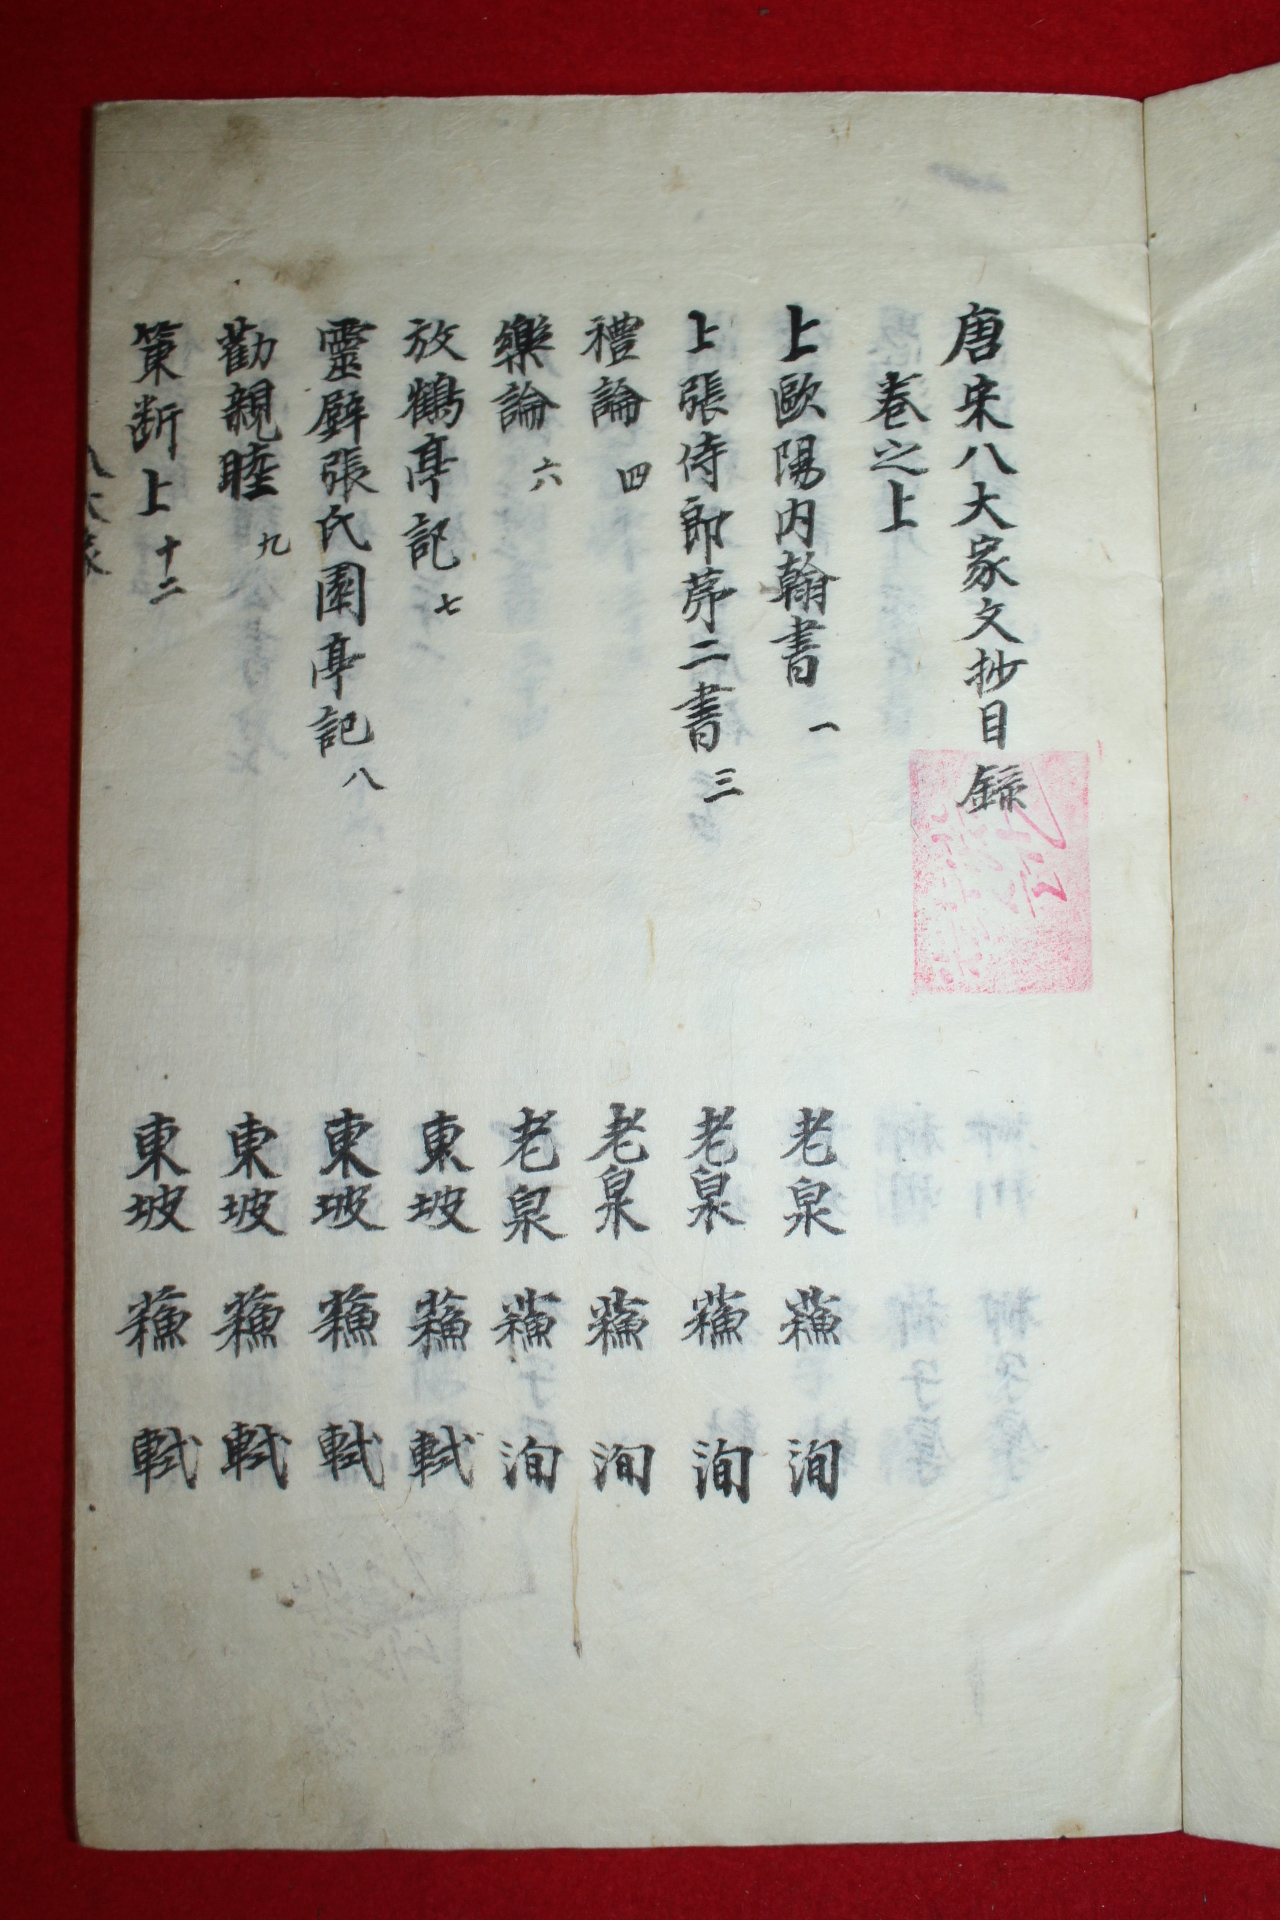 唐宋八大家文抄目錄
卷之上
上歐陽內翰書 一 老泉 蘇 洵
上張侍郎苐二書 三 老泉 蘇 洵
禮論 四 老泉 蘇 洵
樂論 六 老泉 蘇 洵
放鶴亭記 七 東坡 蘇 軾
靈壁張氏園亭記 八 東坡 蘇 軾
勸親睦 九 東坡 蘇 軾
策断上 十二 東坡 蘇 軾
八大家